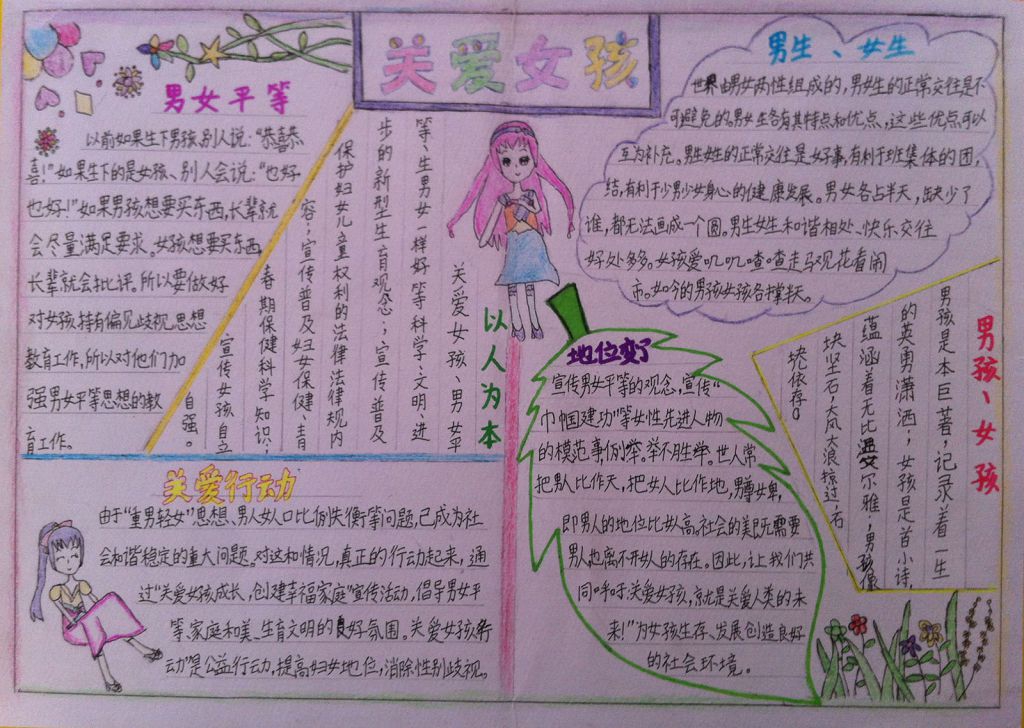 关爱女孩
男女平等
以前如果生下男孩,别人说:“恭喜恭
喜!”如果生下的是女孩、别人会说:“也好
也好!”如果男孩想要买东西,长辈就
会尽量满足要求。女孩想要买东西
长辈就会批评。所以要做好
对女孩持有偏见歧视思想
教育工作,所以对他们加
强男女平等思想的教
育工作。
以人为本
关爱女孩、男女平
等、生男女一样好等科学、文明、进
步的新型生育观念;宣传普及
保护妇女儿童权利的法律法律规内
容;宣传普及妇女保健、青
春期保健科学知识;
宣传女孩自立
自强。
男生、女生
世界由男女两性组成的,男女生的正常交往是不
可避免的。男女生各有其特点和优点,这些优点可以
互为补充。男生女生的正常交往是好事,有利于班集体的团
结,有利于少男少女身心的健康发展。男女各占半天,缺少了
谁,都无法画成一个圆。男生女生和谐相处、快乐交往
好处多多。女孩爱叽叽喳喳走马观花看闹
市。如今的男孩女孩各撑半天。
男孩、女孩
男孩是本巨著,记录着一生
的英勇潇洒;女孩是首小诗,
蕴涵着无比温文尔雅;男孩像
块坚石,大风大浪掠过,石
块依存。
关爱行动
由于“重男轻女”思想、男人女人口比例失衡等问题,已成为社
会和谐稳定的重大问题。对这和情况,真正的行动起来,通
过“关爱女孩成长,创建幸福家庭”宣传活动,倡导男女平
等、家庭和美、生育文明的良好氛围。关爱女孩行
动”是公益行动,提高妇女地位,消除性别歧视。
地位变了
宣传男女平等的观念,宣传“
巾帼建功”等女性先进人物
的模范事例,举不胜举。世人常
把男人比作天,把女人比作地,男尊女卑,
即男人的地位比女人高。社会的美既需要
男人也离不开女人的存在。因此,让我们共
同呼吁:关爱女孩,就是关爱人类的未
来!”为女孩生存、发展创造良好
的社会环境。